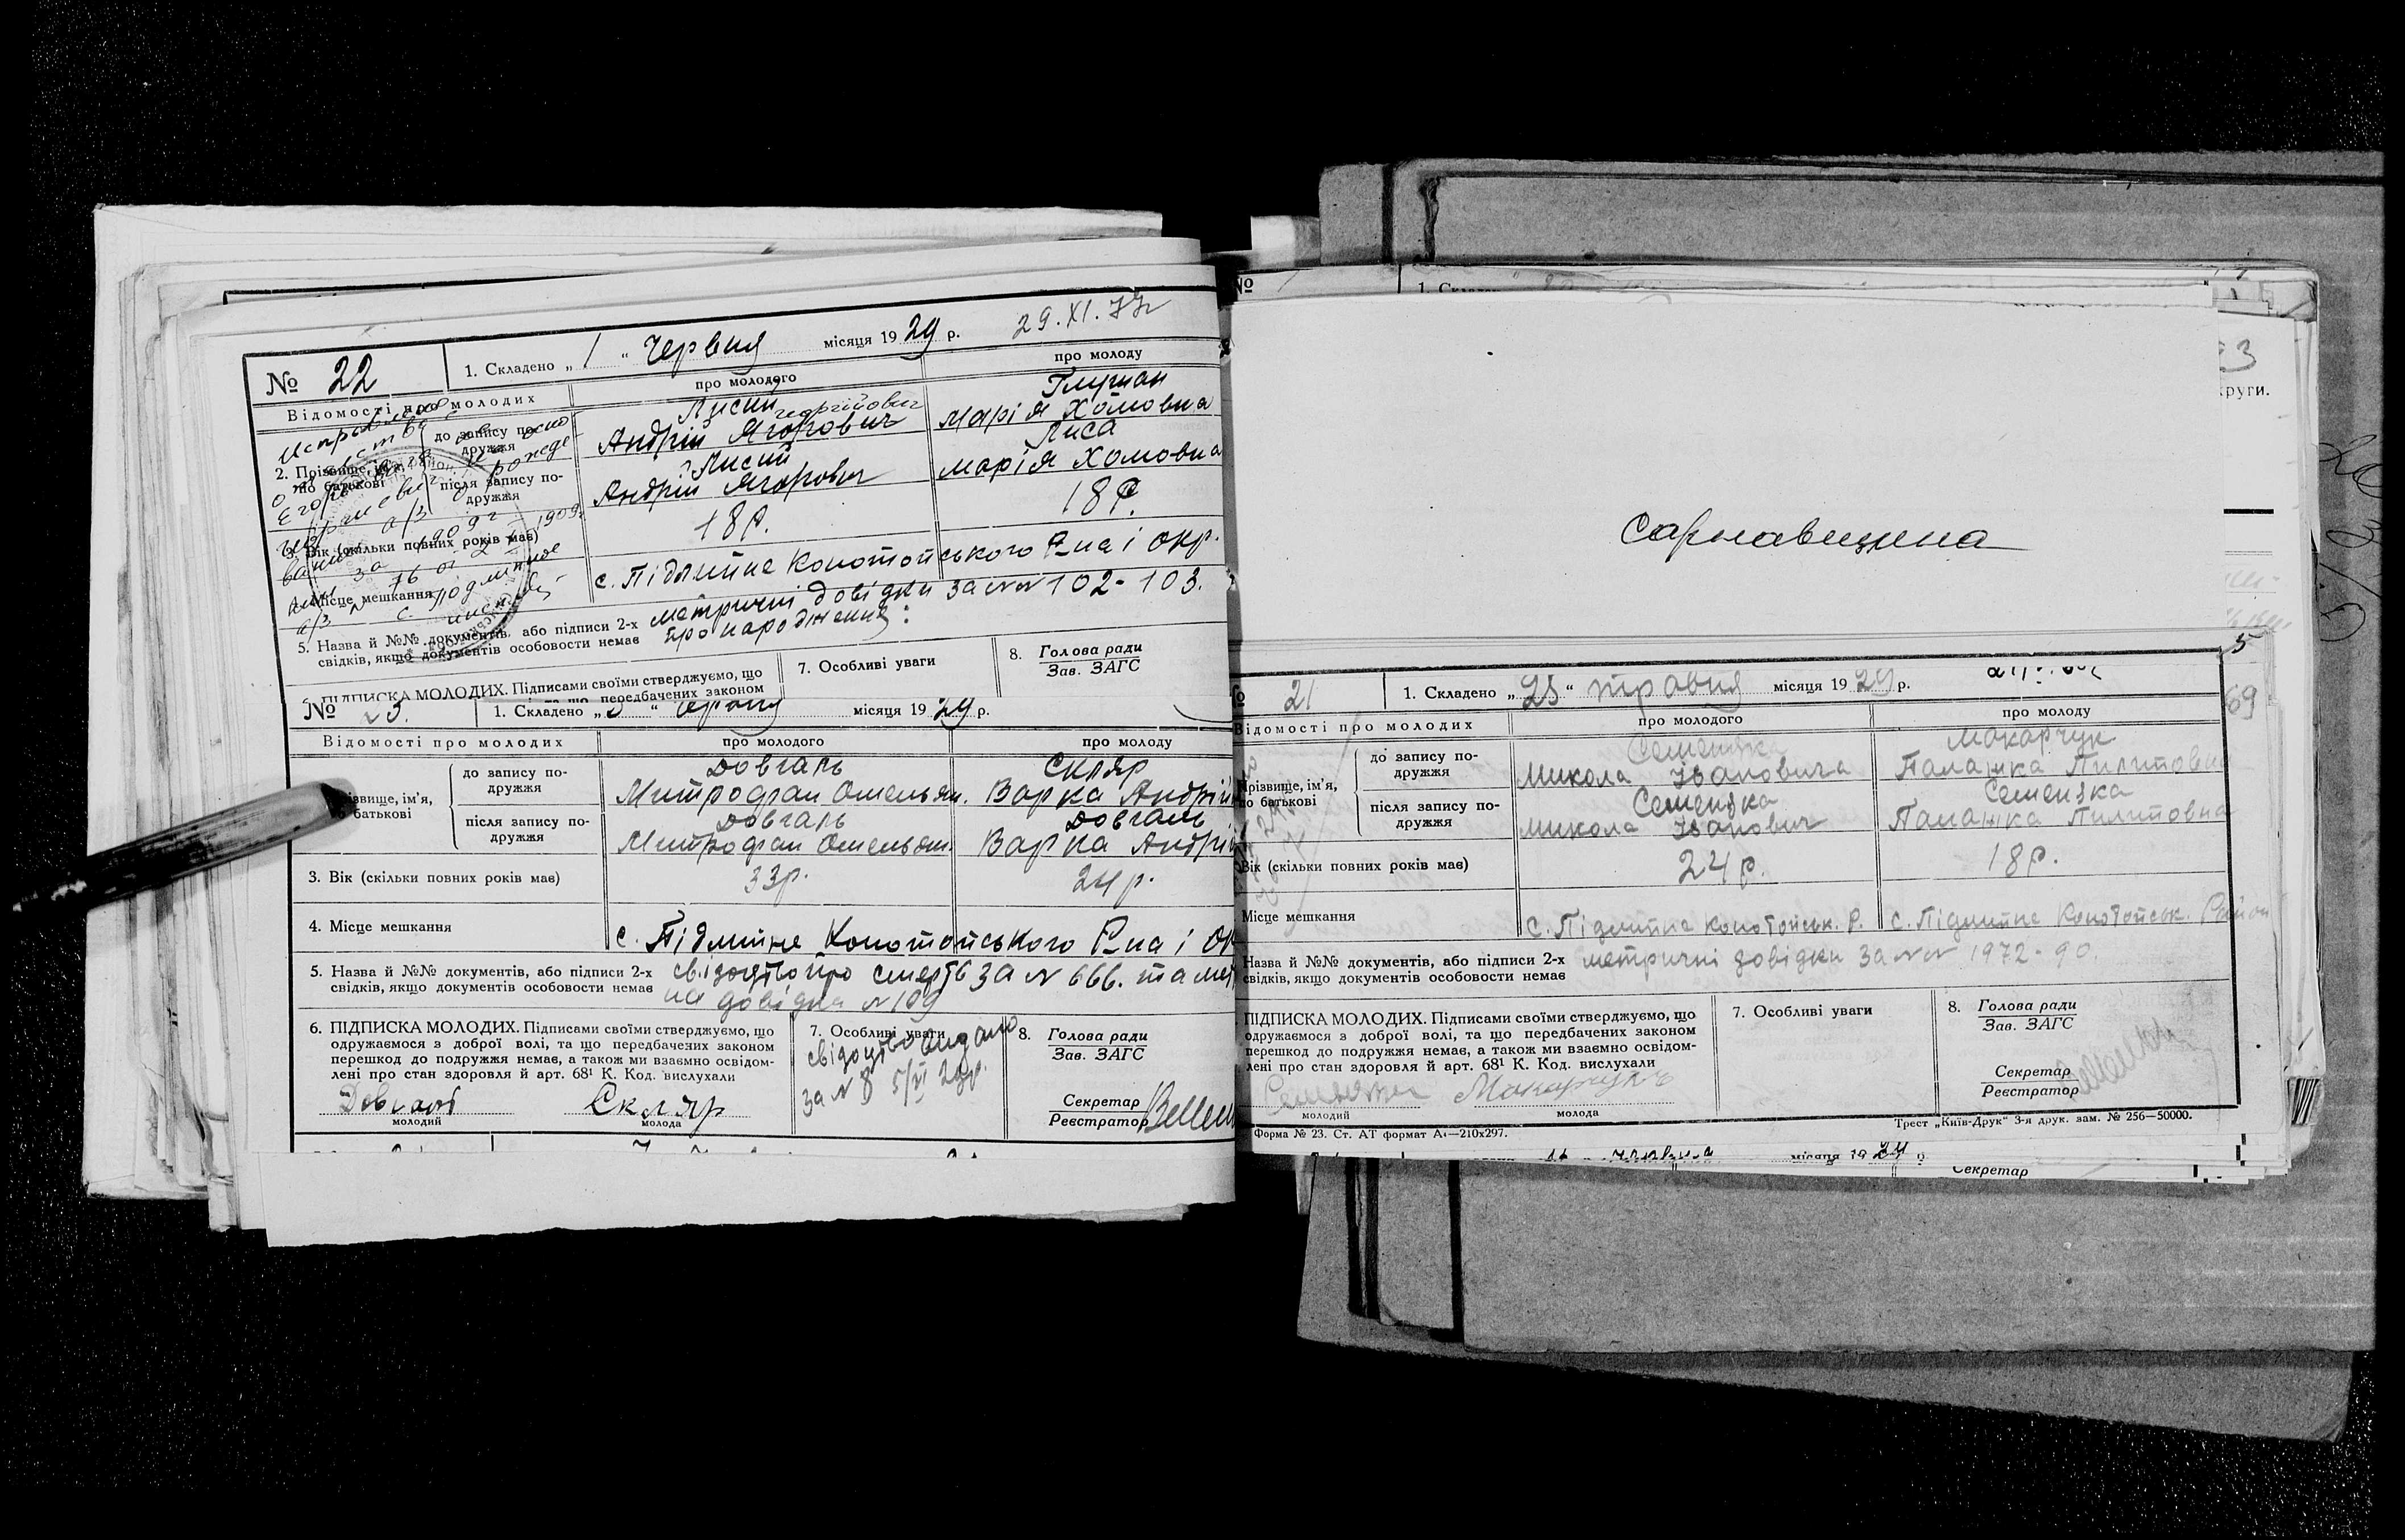 29.XI.77г
№ 22
1. Складено „ 1 “ червня місяця 19 29 р.
Відомості про молодих
про молодого
про молоду
2. Прізвище, ім'я, по батькові
до запису подружжя
Лисий
георгійович
Андрій Ягорович
Глушан
Марія Хомовна
після запису подружжя
Лисий
Андрій Ягорович
Лиса
Марія Хомовна
3. Вік (скільки повних років має)
18 р.
18 р.
4. Місце мешкання
с. Підлипне Конотопського Р-на і окр.
5. Назва й №№ документів, або підписи 2-х
свідків, якщо документів особовости немає
метричні довідки за NN 102-103.
про народження
ПІДПИСКА МОЛОДИХ. Підписами своїми стверджуємо, що
передбачених законом
7. Особливі уваги
8. Голова ради
Зав. ЗАГС
№ 23.
1. Складено „ “ червня місяця 19 29 р.
Відомості про молодих
про молодого
про молоду
ім'я,
батькові
до запису по-
дружжя
Довгаль
Митрофан Омельян.
Скляр
Варка Андрій
після запису по-
дружжя
Довгаль
Митрофан Омельян.
Довгаль
Варка Андрій
3. Вік (скільки повних років має)
33р.
24 р.
4. Місце мешкання
с. Підлипне Конотопського Р-на і ок
5. Назва й №№ документів, або підписи 2-х
свідків, якщо документів особовости немає
свідоцтво про смерть за N 666. та мет
на довідка N 109
6. ПІДПИСКА МОЛОДИХ. Підписами своїми стверджуємо, що
одружаємося з доброї волі, та що передбачених законом
перешкод до подружжя немає, а також ми взаємно освідом-
лені про стан здоровля й арт. 68¹ К. Код. вислухали
Довгаль
молодий
Скляр
молода
7. Особливі уваги
свідоцтво видано
за N 8 5/VI 29р.
8. Голова ради
Зав. ЗАГС
Секретар
Реєстратор
№
1. Складено
3
круги.
Сарнавщина
5
69
№ 21
1. Складено „ 25 “ травня місяця 19 29 р.
Відомості про молодих
про молодого
про молоду
Прізвище, ім'я,
по батькові
до запису по-
дружжя
Семеняка
Микола Івановича
Макарчук
Палажка Пилиповна
після запису по-
дружжя
Семеняка
Микола Іванович
Семеняка
Палажка Пилиповна
Вік (скільки повних років має)
24 р.
18 р.
Місце мешкання
С. Підлипне Конотопськ. Р.
С. Підлипне Конотопськ. Район
Назва й №№ документів, або підписи 2-х
свідків, якщо документів особовости немає
метричні довідки за NN 1972-90.
ПІДПИСКА МОЛОДИХ. Підписами своїми стверджуємо, що
одружаємося з доброї волі, та що передбачених законом
перешкод до подружжя немає, а також ми взаємно освідом-
лені про стан здоровля й арт. 68¹ К. Код. вислухали
Семеняка
молодий
Макарчук
молода
7. Особливі уваги
8. Голова ради
Зав. ЗАГС
Секретар
Реєстратор
Форма № 23. Ст. АТ формат А₄—210х297.
Трест „Київ-Друк“ 3-я друк. зам. № 256—50000.
місяця 19 29 р.
Секретар